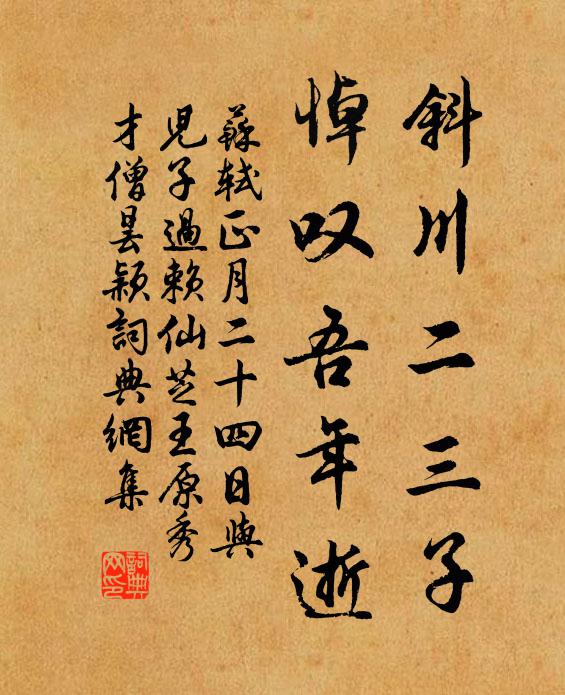 斜川二三子
悼叹吾年逝
蘇軾正月二十四日與
児子過賴仙芝王原秀
才僧曇颖詞典網集
詞典
网印